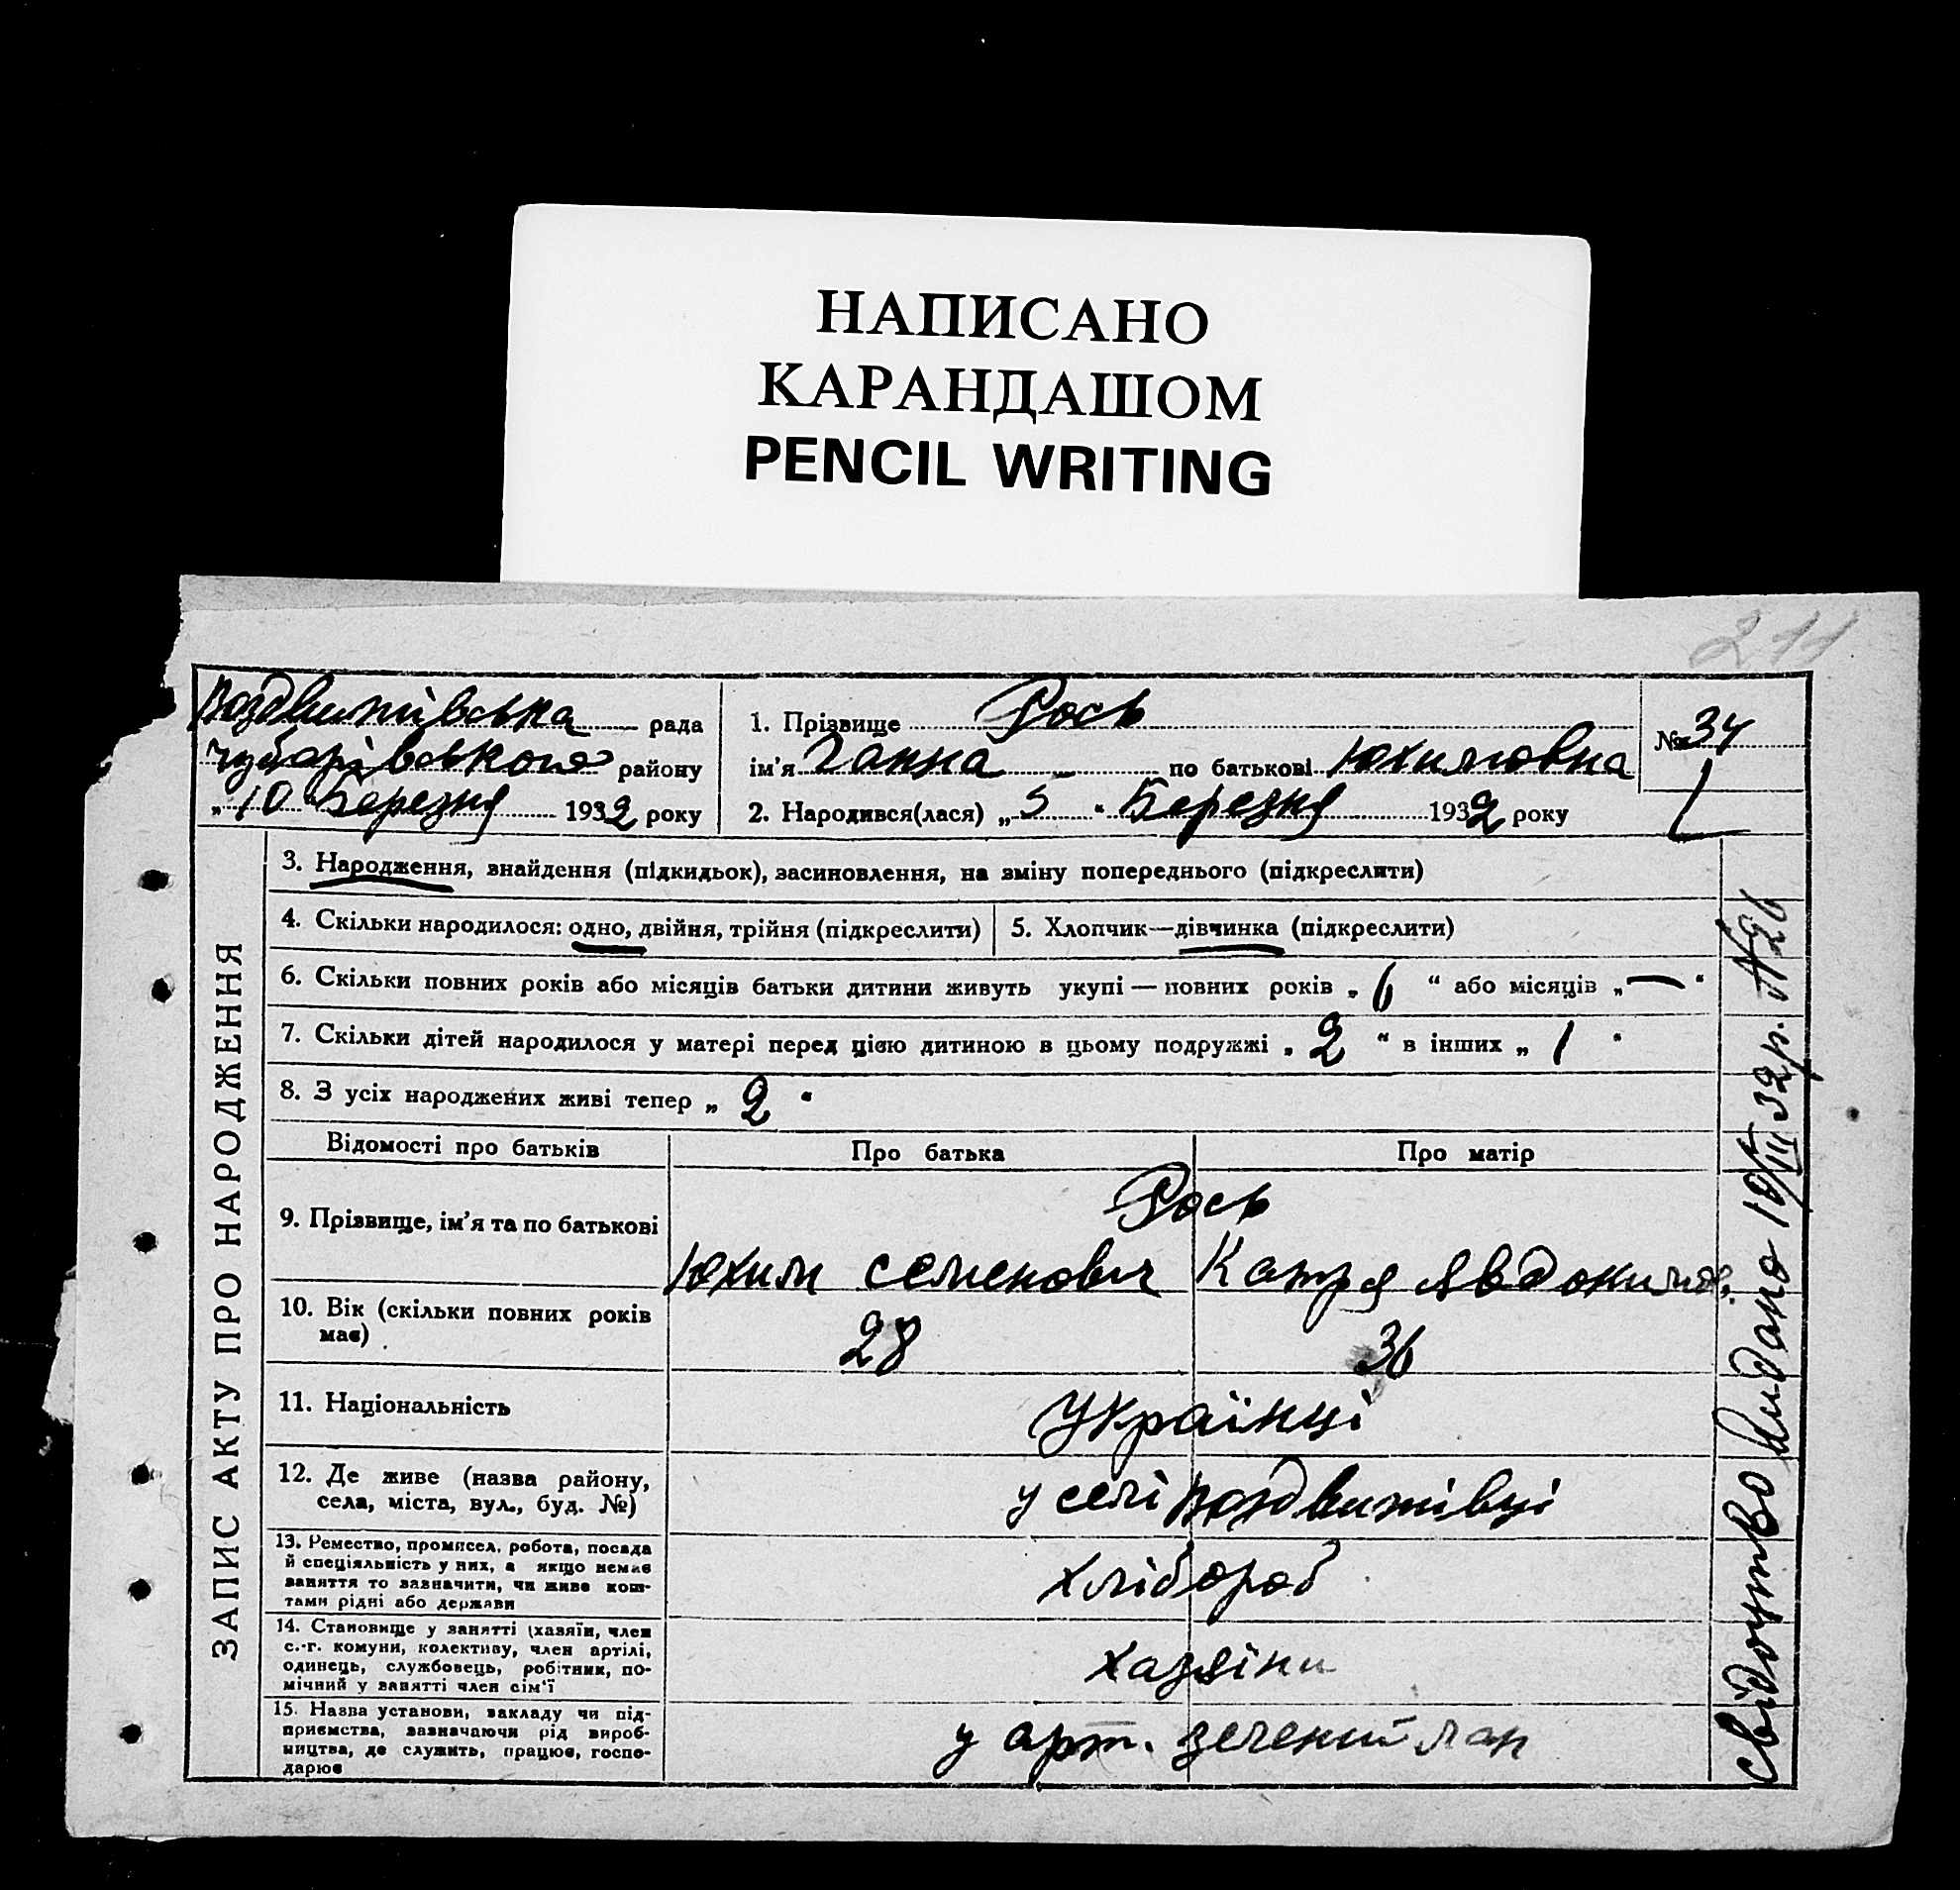 НАПИСАНО
КАРАНДАШОМ
PENCIL WRITING
211
Воздвижівська рада
Чубарівського району
„10“ Березня 1932 року
1. Прізвище Рось
ім'я Ганна по батькові Юхимовна
2. Народився(лася) „5“ Березня 1932 року
№ 34
1
ЗАПИС АКТУ ПРО НАРОДЖЕННЯ
3. Народження, знайдення (підкидьок), засиновлення, на зміну попереднього (підкреслити)
4. Скільки народилося: одно, двійня, трійня (підкреслити)
5. Хлопчик—дівчинка (підкреслити)
6. Скільки повних років або місяців батьки дитини живуть укупі — повних років „6“ або місяців „—“
7. Скільки дітей народилося у матері перед цією дитиною в цьому подружжі „2“ в інших „1“
8. З усіх народжених живі тепер „2“
Відомості про батьків
Про батька
Про матір
9. Прізвище, ім'я та по батькові
Рось
Юхим Семенович
Катря Явдокимов.
10. Вік (скільки повних років
має)
28
36
11. Національність
Українці
12. Де живе (назва району,
села, міста, вул., буд. №)
у селі Воздвижівці
13. Ремество, промисел, робота, посада
й спеціяльність у них, а якщо немає
заняття то зазначити, чи живе кош-
тами рідні або держави
хлібороб
14. Становище у занятті (хазяїн, член
с.-г. комуни, колективу, член артілі,
одинець, службовець, робітник, по-
мічний у занятті член сім'ї
хазяїни
15. Назва установи, закладу чи під-
приємства, зазначаючи рід вироб-
ництва, де служить, працює, госпо-
дарює
у арт. зелений лан
свідоцтво видано 10/III 32 р. №26